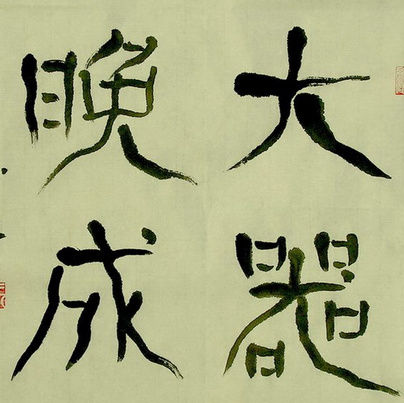 大器
晚成